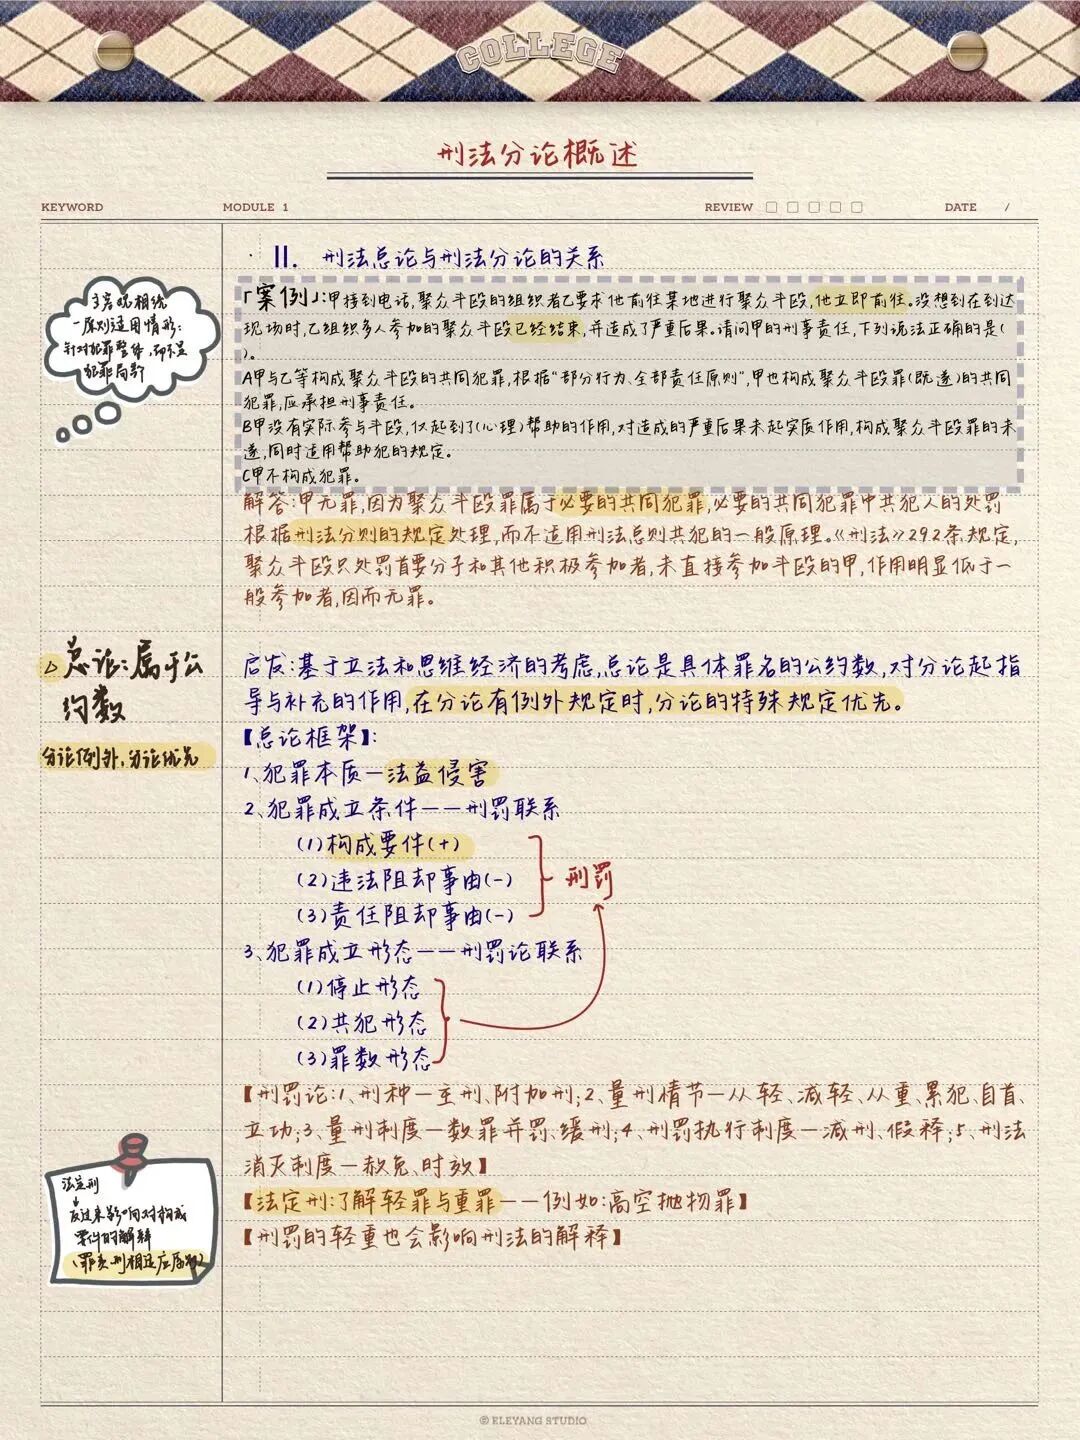 COLLEGE
刑法分论概述
KEYWORD
MODULE 1
REVIEW
DATE /
· II. 刑法总论与刑法分论的关系
「案例」:甲接到电话,聚众斗殴的组织者乙要求他前往某地进行聚众斗殴,他立即前往。没想到在到达
现场时,乙组织多人参加的聚众斗殴已经结束,并造成了严重后果。请问甲的刑事责任,下列说法正确的是(
)。
A甲与乙等构成聚众斗殴的共同犯罪,根据“部分行为、全部责任原则”,甲也构成聚众斗殴罪(既遂)的共同
犯罪,应承担刑事责任。
B甲没有实际参与斗殴,仅起到了(心理)帮助的作用,对造成的严重后果未起实质作用,构成聚众斗殴罪的未
遂,同时适用帮助犯的规定。
C甲不构成犯罪。
解答:甲无罪,因为聚众斗殴罪属于必要的共同犯罪,必要的共同犯罪中共犯人的处罚
根据刑法分则的规定处理,而不适用刑法总则共犯的一般原理。《刑法》292条规定,
聚众斗殴只处罚首要分子和其他积极参加者,未直接参加斗殴的甲,作用明显低于一
般参加者,因而无罪。
一原则适用情形:
针对犯罪整体,而不是
犯罪局部
△总论:属于公
约数
分论例外,分论优先
启发:基于立法和思维经济的考虑,总论是具体罪名的公约数,对分论起指
导与补充的作用,在分论有例外规定时,分论的特殊规定优先。
【总论框架】:
1、犯罪本质—法益侵害
2、犯罪成立条件——刑罚联系
(1)构成要件(+)
(2)违法阻却事由(-)
(3)责任阻却事由(-)
刑罚
3、犯罪成立形态——刑罚论联系
(1)停止形态
(2)共犯形态
(3)罪数形态
【刑罚论:1、刑种—主刑、附加刑;2、量刑情节—从轻、减轻、从重、累犯、自首、
立功;3、量刑制度—数罪并罚、缓刑;4、刑罚执行制度—减刑、假释;5、刑法
消灭制度—赦免、时效】
【法定刑:了解轻罪与重罪——例如:高空抛物罪】
【刑罚的轻重也会影响刑法的解释】
法定刑
↓
反过来影响对构成
要件的解释
(罪责刑相适应原则)
© ELEYANG STUDIO